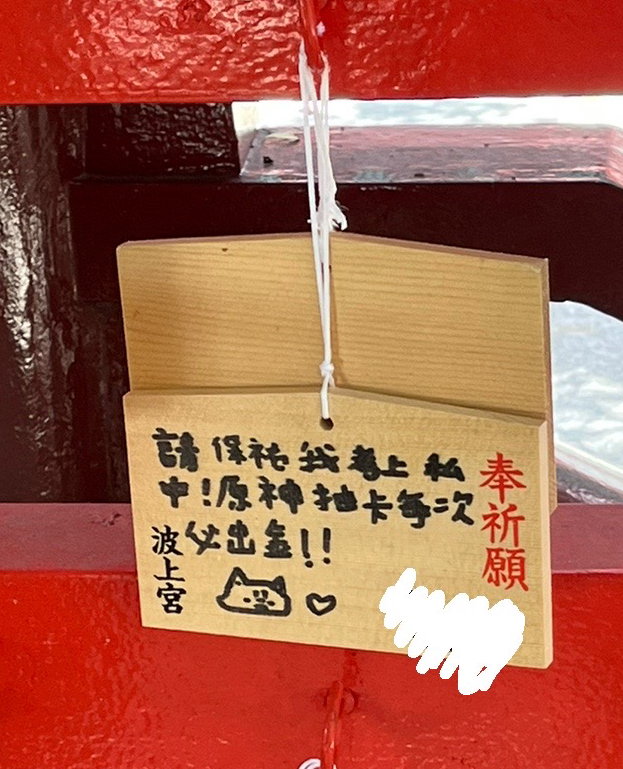 奉祈願
請保祐我考上私
中!原神抽卡每次
必出金!!
波上宮